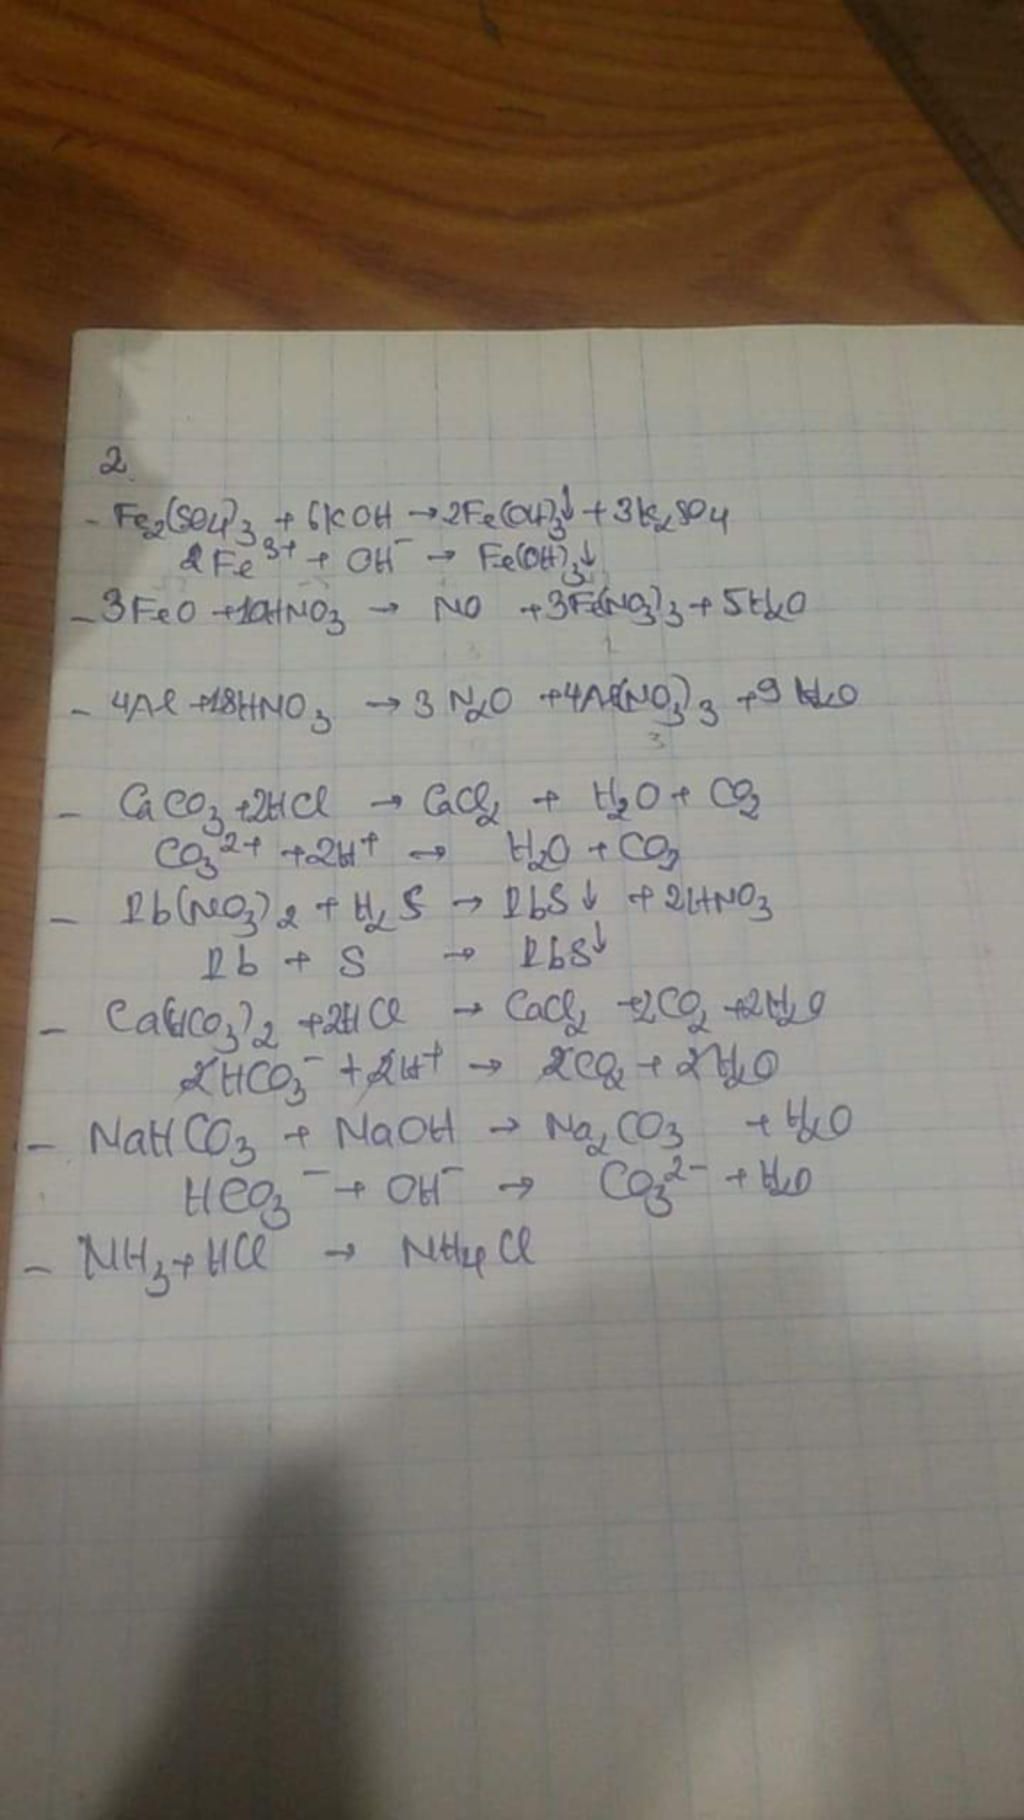 2.
- Fe₂(SO₄)₃ + 6KOH → 2Fe(OH)₃↓ + 3K₂SO₄
2Fe³⁺ + OH⁻ → Fe(OH)₃↓
- 3FeO + 10HNO₃ → NO + 3Fe(NO₃)₃ + 5H₂O
- 4Al + 18HNO₃ → 3N₂O + 4Al(NO₃)₃ + 9H₂O
- CaCO₃ + 2HCl → CaCl₂ + H₂O + CO₂
CO₃²⁺ + 2H⁺ → H₂O + CO₂
- Pb(NO₃)₂ + H₂S → PbS↓ + 2HNO₃
Pb + S → PbS↓
- Ca(HCO₃)₂ + 2HCl → CaCl₂ + 2CO₂ + 2H₂O
2HCO₃⁻ + 2H⁺ → 2CO₂ + 2H₂O
- NaHCO₃ + NaOH → Na₂CO₃ + H₂O
HCO₃⁻ + OH⁻ → CO₃²⁻ + H₂O
- NH₃ + HCl → NH₄Cl